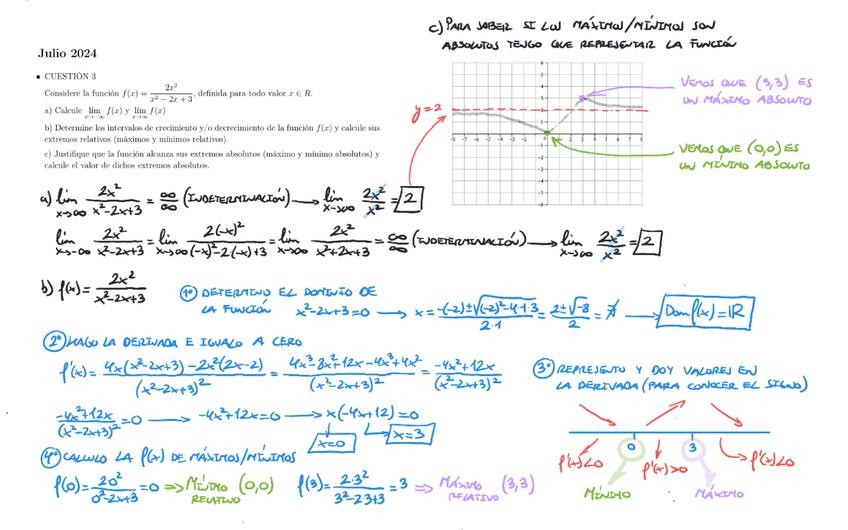 Julio 2024
▪ CUESTIÓN 3
Considere la función f(x) = 2x²/(x² − 2x + 3), definida para todo valor x ∈ R.
a) Calcule lim x→−∞ f(x) y lim x→∞ f(x)
b) Determine los intervalos de crecimiento y/o decrecimiento de la función f(x) y calcule sus
extremos relativos (máximos y mínimos relativos).
c) Justifique que la función alcanza sus extremos absolutos (máximo y mínimo absolutos) y
calcule el valor de dichos extremos absolutos.
c) PARA SABER SI LOS MÁXIMOS/MÍNIMOS SON
ABSOLUTOS TENGO QUE REPRESENTAR LA FUNCIÓN
y=2
VEMOS QUE (3,3) ES
UN MÁXIMO ABSOLUTO
VEMOS QUE (0,0) ES
UN MÍNIMO ABSOLUTO
a) lim x→∞ 2x²/(x²-2x+3) = ∞/∞ (INDETERMINACIÓN) → lim x→∞ 2x²/x² = 2
lim x→-∞ 2x²/(x²-2x+3) = lim x→∞ 2(-x)²/((-x)²-2(-x)+3) = lim x→∞ 2x²/(x²+2x+3) = ∞/∞ (INDETERMINACIÓN) → lim x→∞ 2x²/x² = 2
b) f(x) = 2x²/(x²-2x+3)
1º DETERMINO EL DOMINIO DE
LA FUNCIÓN x²-2x+3=0 → x = (-(-2)±√((-2)²-4·1·3))/(2·1) = (2±√-8)/2 = ∄ → Dom f(x) = ℝ
2º HAGO LA DERIVADA E IGUALO A CERO
f'(x) = (4x(x²-2x+3)-2x²(2x-2))/(x²-2x+3)² = (4x³-8x²+12x-4x³+4x²)/(x²-2x+3)² = (-4x²+12x)/(x²-2x+3)²
(-4x²+12x)/(x²-2x+3)² = 0 → -4x²+12x=0 → x(-4x+12)=0
x=0 x=3
3º REPRESENTO Y DOY VALORES EN
LA DERIVADA (PARA CONOCER EL SIGNO)
0 3
f'(x)<0 f'(x)>0 f'(x)<0
MÍNIMO MÁXIMO
4º CALCULO LA f(x) DE MÁXIMOS/MÍNIMOS
f(0) = 2·0²/(0²-2x+3) = 0 ⇒ MÍNIMO RELATIVO (0,0) f(3) = 2·3²/(3²-2·3+3) = 3 ⇒ MÁXIMO RELATIVO (3,3)